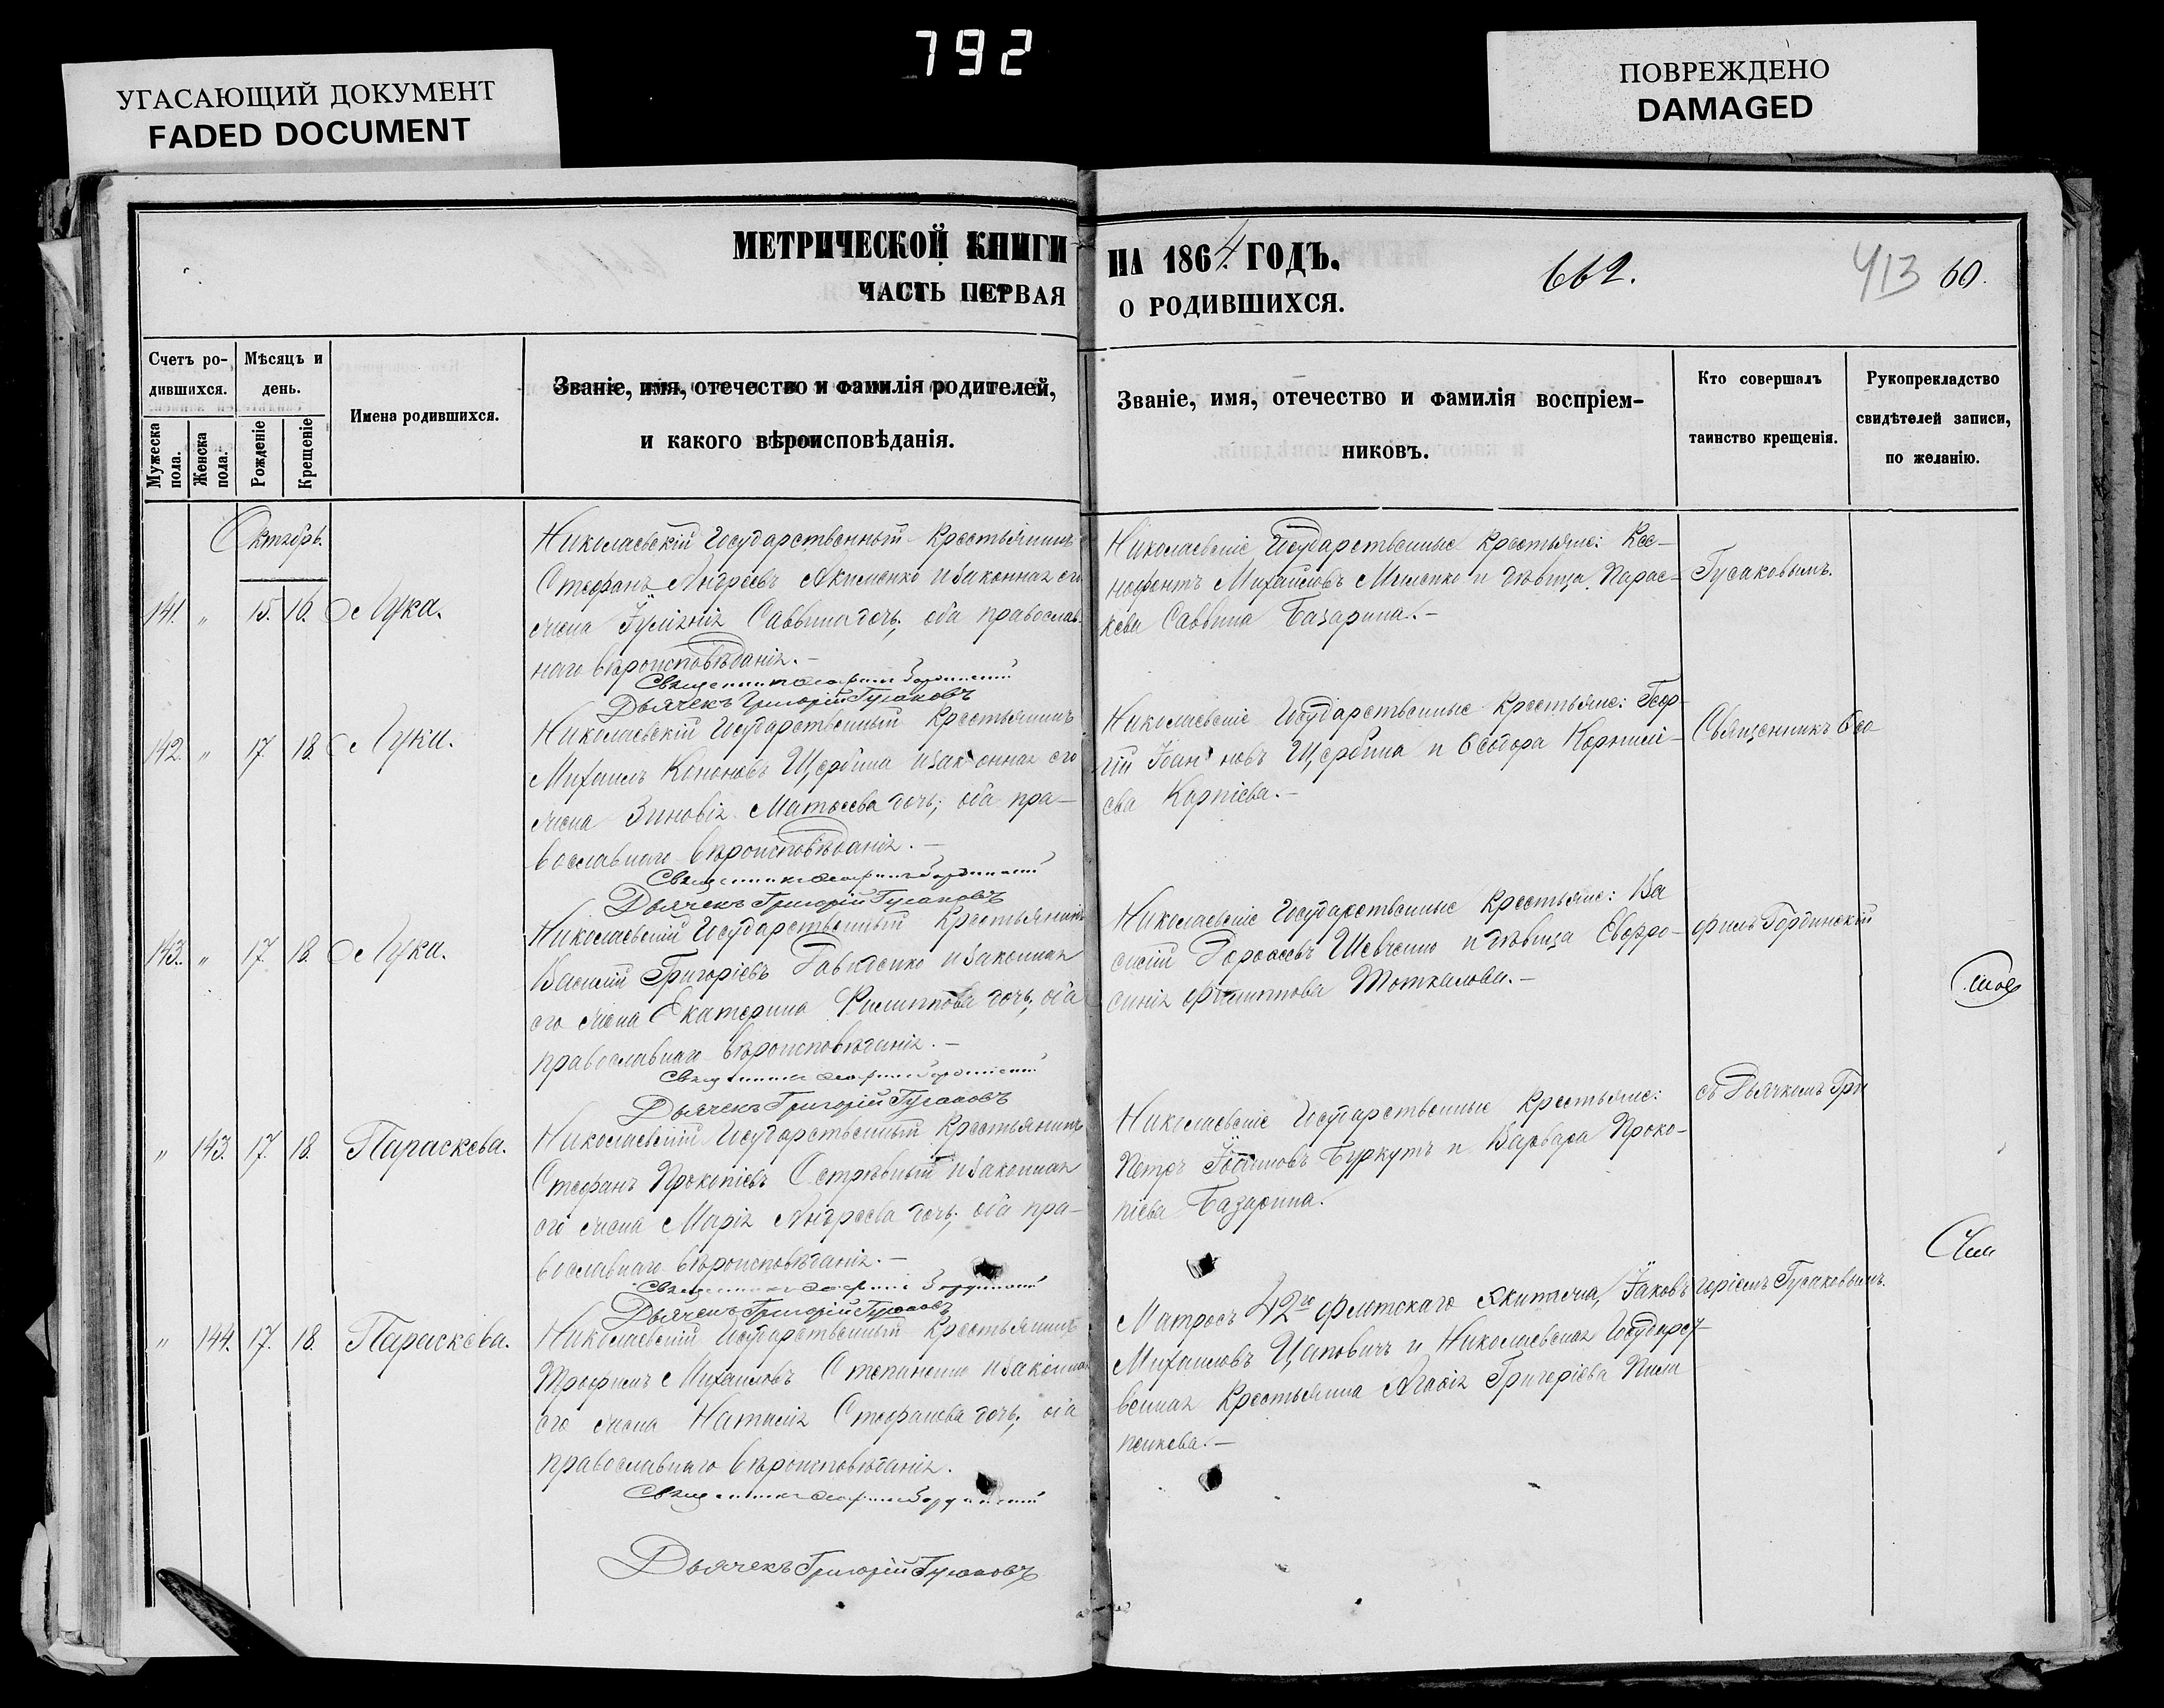 792
УГАСАЮЩИЙ ДОКУМЕНТ
FADED DOCUMENT
ПОВРЕЖДЕНО
DAMAGED
МЕТРИЧЕСКОЙ КНИГИ НА 1864 ГОДЪ.
ЧАСТЬ ПЕРВАЯ О РОДИВШИХСЯ.
662.
413 60.
Счетъ ро-
дившихся.
Мужеска пола.
Женска пола.
Мѣсяцъ и
день.
Рожденіе
Крещеніе
Имена родившихся.
Званіе, имя, отечество и фамилія родителей,
и какого вѣроисповѣданія.
Званіе, имя, отечество и фамилія воспріем-
никовъ.
Кто совершалъ
таинство крещенія.
Рукоприкладство
свидѣтелей записи,
по желанію.
Октябрь.
141. " 15. 16. Лука.
Николаевскій Государственный Крестьянинъ
Стефанъ Андреевъ Акименко и законная его
жена Іуліанія Саввина дочь, оба православ-
наго вѣроисповѣданія.—
Священникъ
Дьячекъ Григорій Гусаковъ
Николаевскіе Государственные Крестьяне: Ксе-
нофонтъ Михайловъ и дѣвица Парас-
кева Саввина Базарина.—
Гусаковымъ.
142. " 17. 18. Лука.
Николаевскій Государственный Крестьянинъ
Михаилъ Кононовъ Щербина и законная его
жена Зиновія Матѳеева дочь; оба пра-
вославнаго вѣроисповѣданія.—
Священникъ
Дьячекъ Григорій Гусаковъ
Николаевскіе Государственные Крестьяне: Геор-
гій Іоанновъ Щербина и Ѳеодора Корнилі-
ева Карпіева.—
Священникъ Ѳео-
143. " 17. 18. Лука.
Николаевскій Государственный Крестьянинъ
Василій Григоріевъ Давиденко и законная
его жена Екатерина Филиппова дочь, оба
православнаго вѣроисповѣданія.—
Священникъ
Дьячекъ Григорій Гусаковъ
Николаевскіе Государственные Крестьяне: Ва
силій Шевченко и дѣвица Евфро-
синія Филиппова Моткалова.—
филъ Гординскій
" 143. 17. 18. Параскева.
Николаевскій Государственный Крестьянинъ
Стефанъ Прокопіевъ и законная
его жена Марія Андреева дочь, оба пра-
вославнаго вѣроисповѣданія.—
Священникъ
Дьячекъ Григорій Гусаковъ
Николаевскіе Государственные Крестьяне:
Петръ Буркутъ и Варвара Проко-
піева Базарина.
съ Дьячкомъ Гри
" 144. 17. 18. Параскева.
Николаевскій Государственный Крестьянинъ
Трофимъ Михаиловъ Степаненко и законная
его жена Наталія Стефанова дочь, оба
православнаго вѣроисповѣданія.
Священникъ
Дьячекъ Григорій Гусаковъ
Матросъ 42го флотскаго экипажа, Іаковъ
Михаиловъ Цаповичъ и Николаевская Государст-
венная Крестьянка Агафія Григоріева Пили
пенкова.—
горіемъ Гусаковымъ.